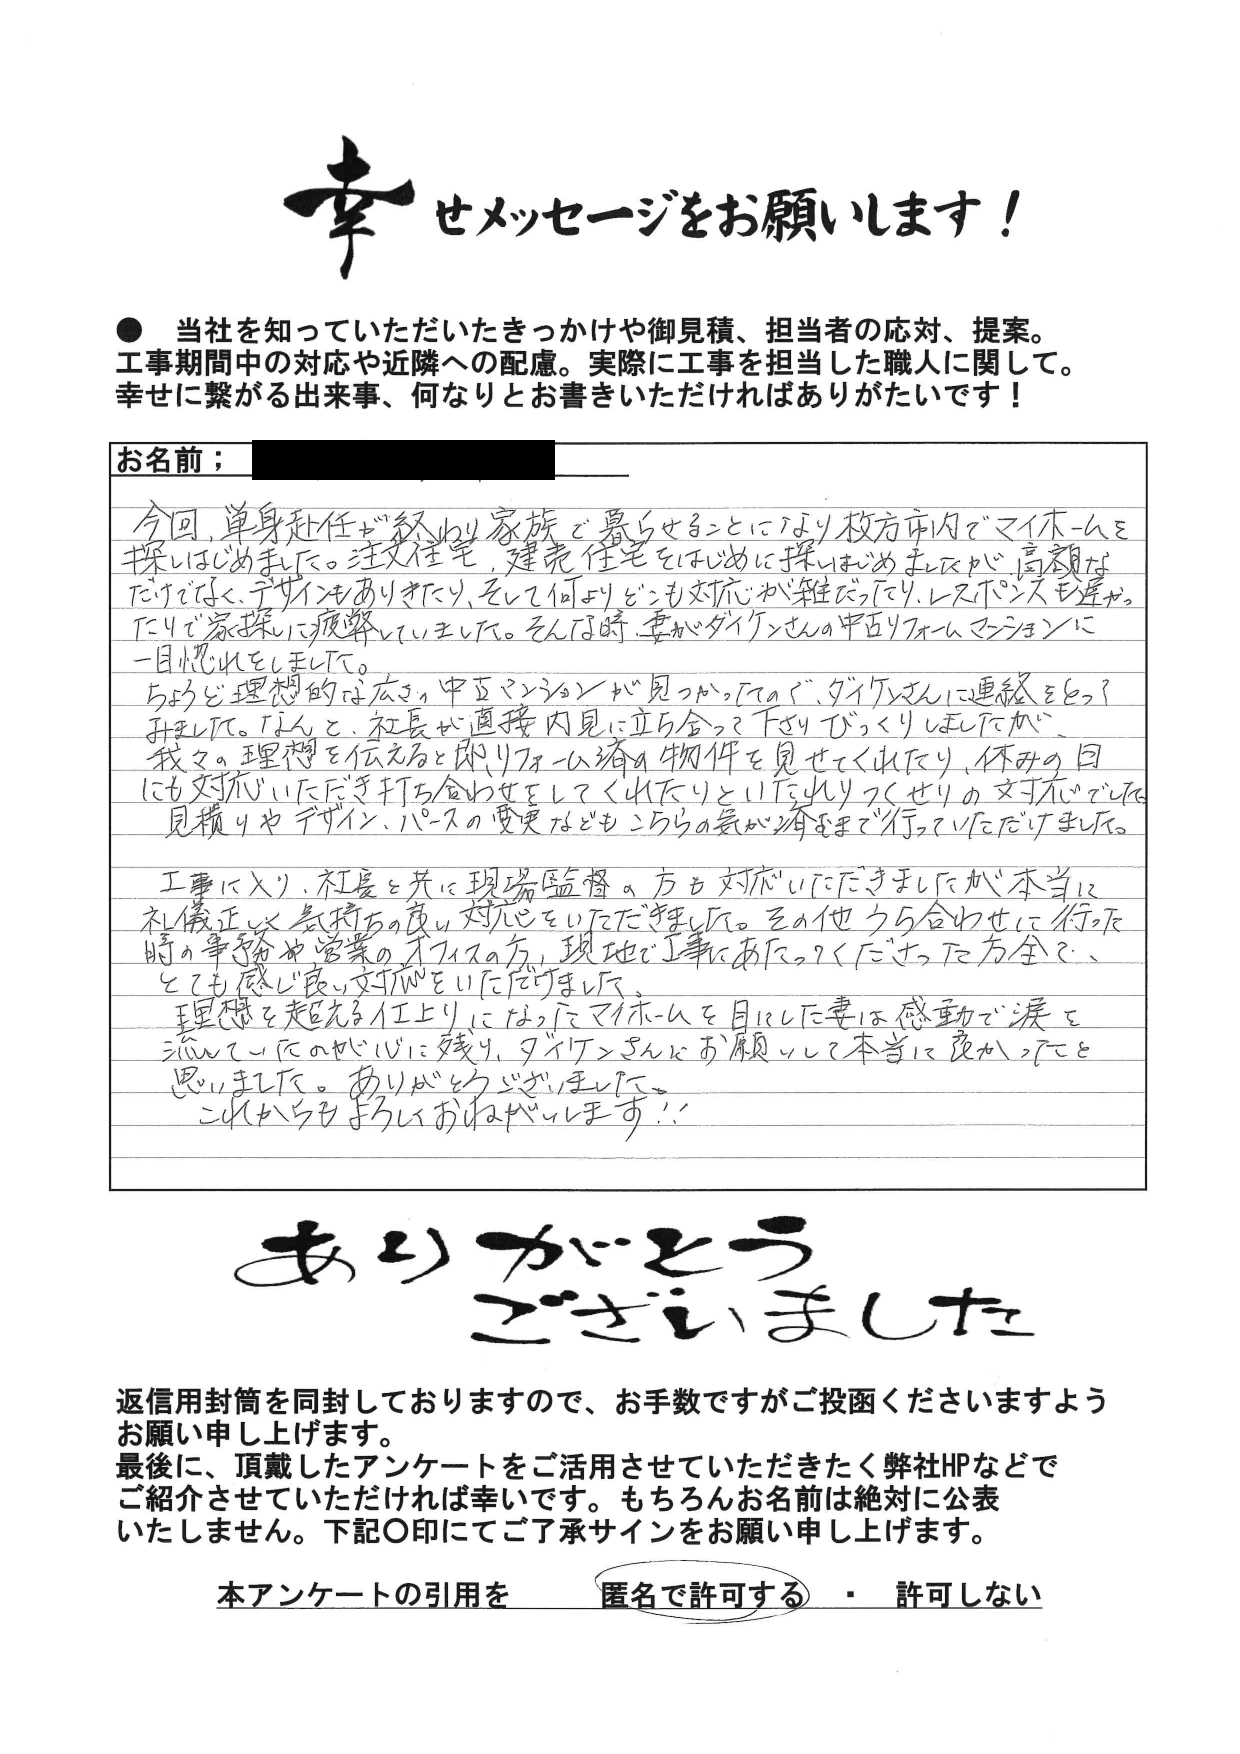 幸せメッセージをお願いします！
● 当社を知っていただいたきっかけや御見積、担当者の応対、提案。
工事期間中の対応や近隣への配慮。実際に工事を担当した職人に関して。
幸せに繋がる出来事、何なりとお書きいただければありがたいです！
お名前；
今回、単身赴任が終わり家族で暮らせることになり枚方市内でマイホームを
探しはじめました。注文住宅、建売住宅をはじめに探しはじめましたが高額な
だけでなく、デザインもありきたり、そして何よりどこも対応が雑だったり、レスポンスも遅かっ
たりで家探しに疲弊していました。そんな時、妻がダイケンさんの中古リフォームマンションに
一目惚れをしました。
ちょうど理想的な広さの中古マンションが見つかったので、ダイケンさんに連絡をとって
みました。なんと、社長が直接内見に立ち会って下さりびっくりしましたが、
我々の理想を伝えると即、リフォーム済の物件を見せてくれたり、休みの日
にも対応いただき打ち合わせをしてくれたりといたれりつくせりの対応でした
見積りやデザイン、パースの変更などもこちらの気が済むまで行っていただけました。
工事に入り、社長と共に現場監督の方も対応いただきましたが本当に
礼儀正しく気持ちの良い対応をいただきました。その他うち合わせに行った
時の事務や営業のオフィスの方、現地で工事にあたってくださった方全て、
とても感じ良い対応をいただけました。
理想を超える仕上りになったマイホームを目にした妻は感動で涙を
流していたのが心に残り、ダイケンさんにお願いして本当に良かったと
思いました。ありがとうございました。
これからもよろしくおねがいします!!
ありがとう
ございました
返信用封筒を同封しておりますので、お手数ですがご投函くださいますよう
お願い申し上げます。
最後に、頂戴したアンケートをご活用させていただきたく弊社HPなどで
ご紹介させていただければ幸いです。もちろんお名前は絶対に公表
いたしません。下記〇印にてご了承サインをお願い申し上げます。
本アンケートの引用を 匿名で許可する ・ 許可しない